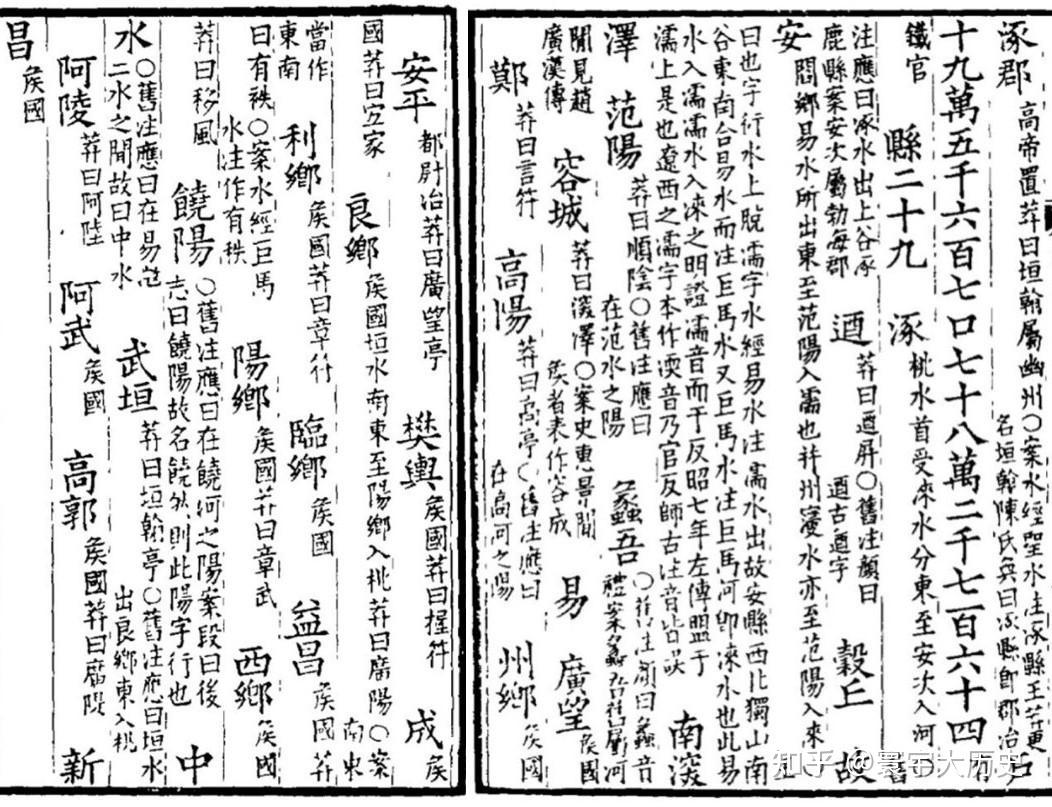 涿郡高帝置莽曰垣翰屬幽州○案水經聖水注涿縣王莽更名垣翰陳氏奐曰涿縣即郡治
十九萬五千六百七口七十八萬二千七百六十四
鐵官
縣二十九
涿桃水首受淶水分東至安次入河
注應曰涿水出上谷涿鹿縣案安次屬勃海郡
迺莽曰迺屏○舊注顏曰迺古遒字
榖丘
故安閻鄉易水所出東至范陽入濡也并州寖水亦至范陽入淶
曰也字行水上脫濡字水經易水注濡水出故安縣西北獨山南
谷東南合易水而注巨馬水又巨馬水注巨馬河即淶水也此易
水入濡濡水入淶之明證濡音而于反昭七年左傳盟于
濡上是也遼西之濡字本作渜音乃官反師古注音皆誤
南深澤
范陽莽曰順陰○舊注應曰在范水之陽
蠡吾
易
廣望侯國
聞見趙廣漢傳
容城莽曰深澤○案史惠景間侯者表作容成
鄚莽曰言符
高陽莽曰高亭○舊注應曰在高河之陽
州鄉侯國
安平都尉治莽曰廣望亭
樊輿侯國莽曰握符
成侯國莽曰宜家
良鄉侯國垣水南東至陽鄉入桃莽曰廣陽○案南東當作東南
利鄉侯國莽曰章符
臨鄉侯國
益昌侯國莽曰有秩○案水經巨馬水注作有秩
陽鄉侯國莽曰章武
西鄉侯國莽曰移風
饒陽○舊注應曰在饒河之陽案段曰後志曰饒陽故名饒然則此陽字衍也
中水○舊注應曰在易滱二水之間故曰中水
武垣莽曰垣翰亭○舊注應曰垣水出良鄉東入桃
阿陵莽曰阿陸
阿武侯國
高郭侯國莽曰廣隄
新昌侯國
知乎 @寰宇大历史